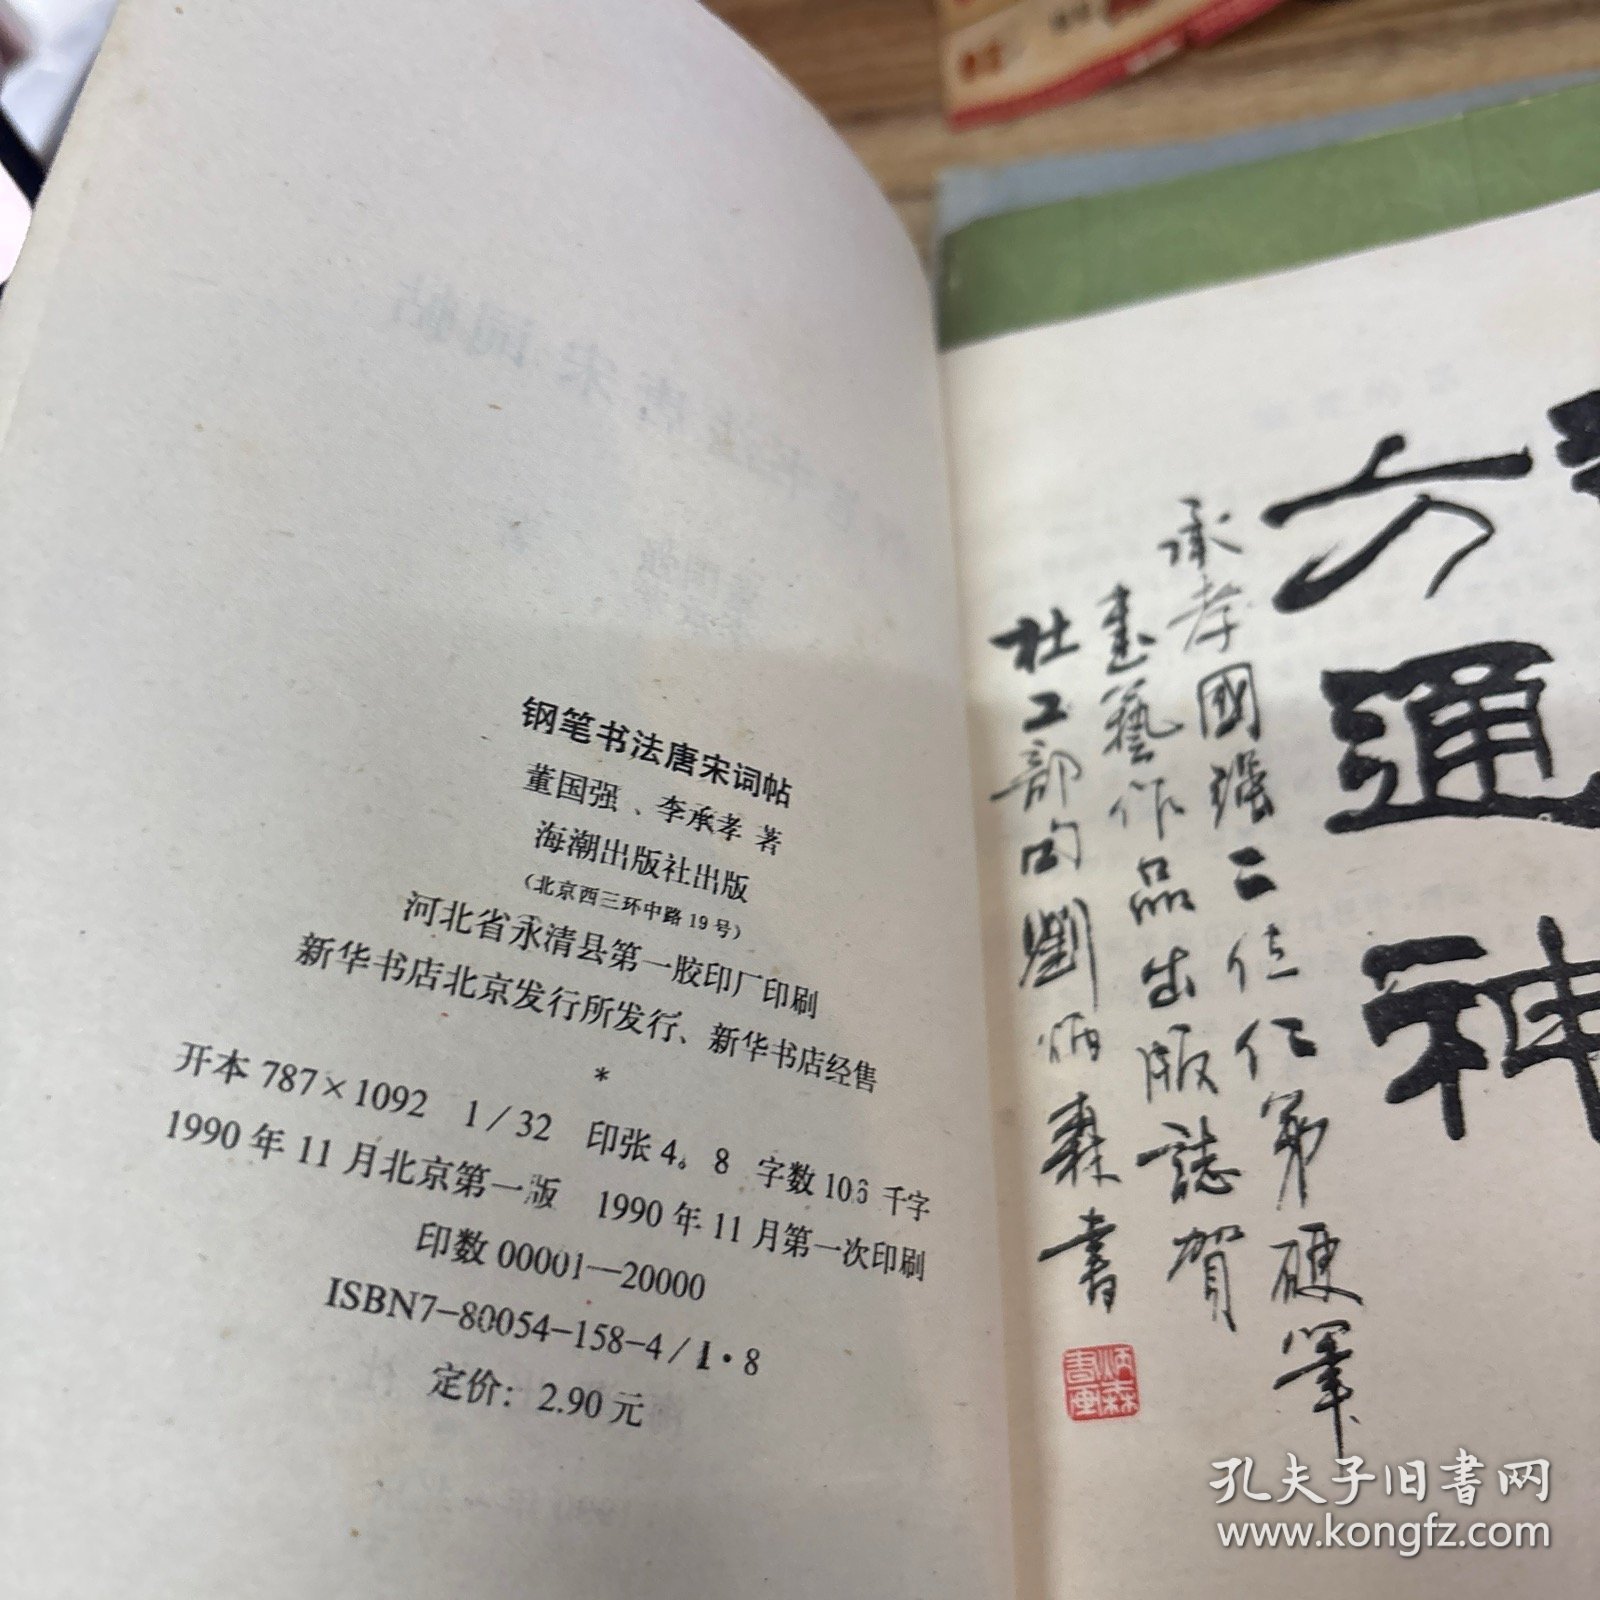 钢笔书法唐宋词帖
董国强、李承孝 著
海潮出版社出版
(北京西三环中路19号)
河北省永清县第一胶印厂印刷
新华书店北京发行所发行、新华书店经售
*
开本 787×1092 1/32 印张 4。8 字数 106 千字
1990年11月北京第一版 1990年11月第一次印刷
印数 00001—20000
ISBN7-80054-158-4/1·8
定价：2.90元
方通神
承孝國瑤二位仁弟硬筆
書藝作品出版誌賀
杜工部句劉炳森書
炳森書画
孔夫子旧书网
www.kongfz.com